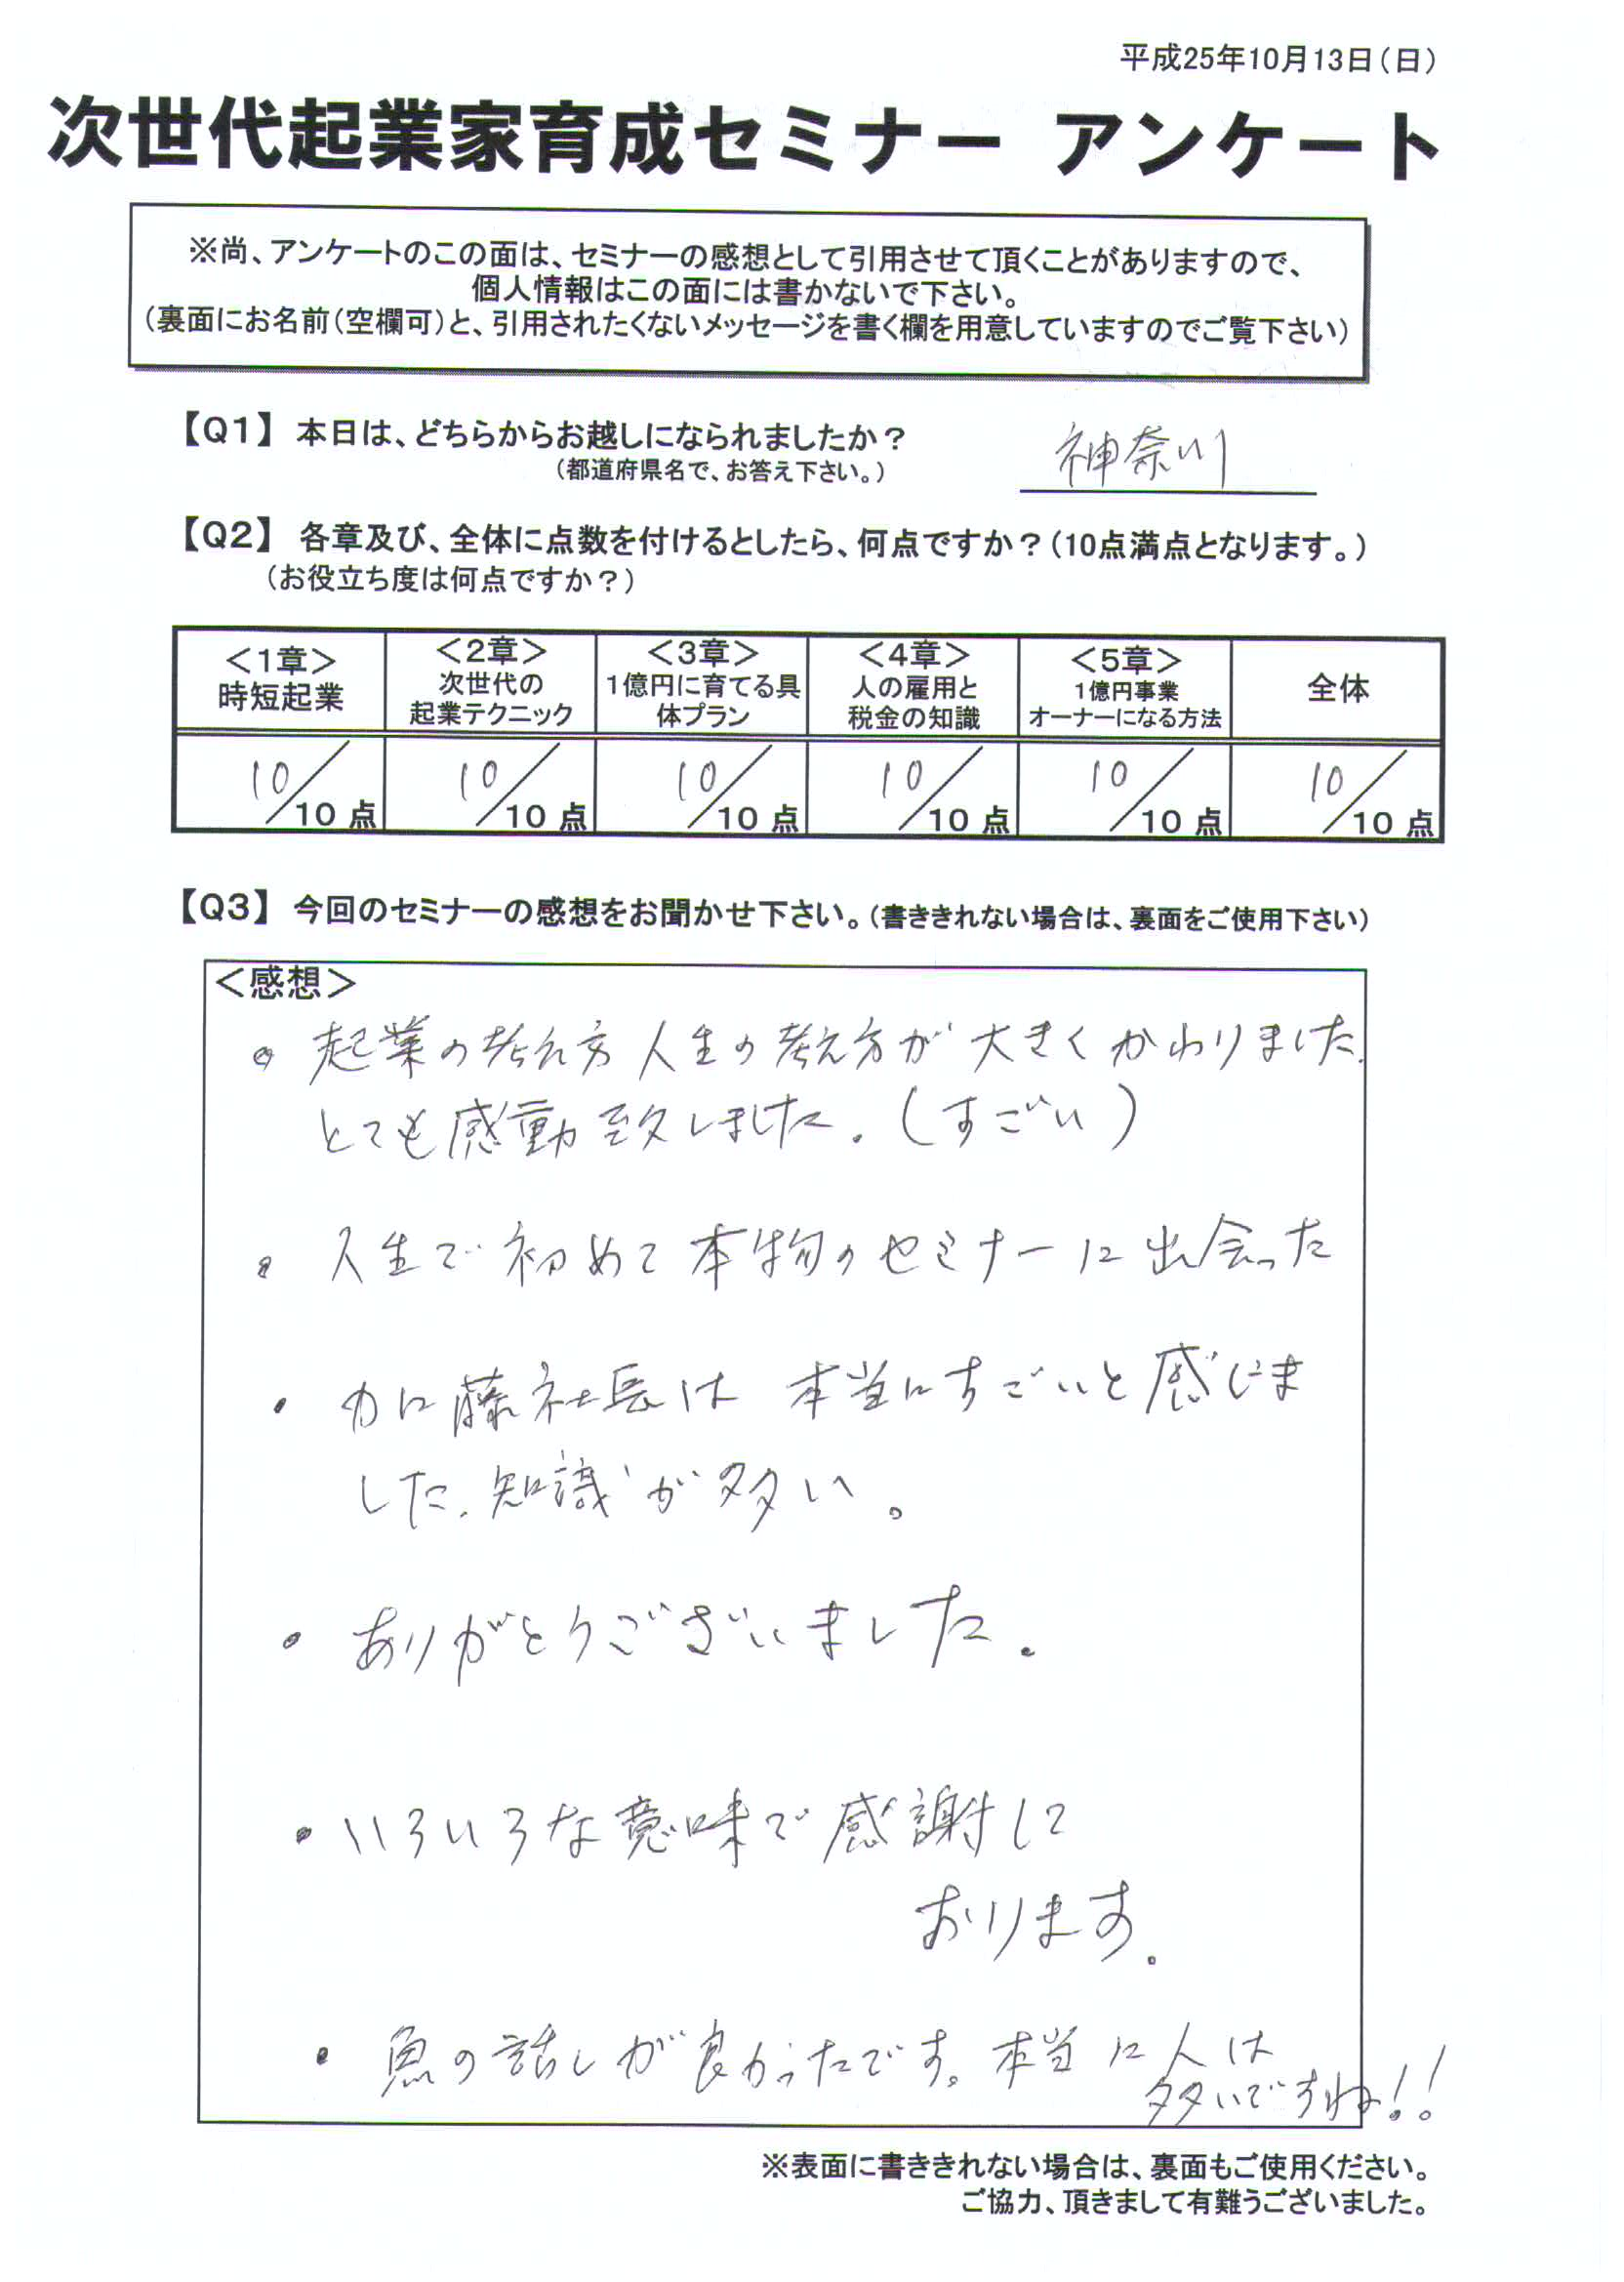 平成25年10月13日(日)
次世代起業家育成セミナー アンケート
※尚、アンケートのこの面は、セミナーの感想として引用させて頂くことがありますので、
個人情報はこの面には書かないで下さい。
(裏面にお名前(空欄可)と、引用されたくないメッセージを書く欄を用意していますのでご覧下さい)
【Q1】 本日は、どちらからお越しになられましたか? 神奈川
(都道府県名で、お答え下さい。)
【Q2】 各章及び、全体に点数を付けるとしたら、何点ですか?(10点満点となります。)
(お役立ち度は何点ですか?)
<1章>
時短起業
<2章>
次世代の
起業テクニック
<3章>
1億円に育てる具
体プラン
<4章>
人の雇用と
税金の知識
<5章>
1億円事業
オーナーになる方法
全体
10/10点 10/10点 10/10点 10/10点 10/10点 10/10点
【Q3】 今回のセミナーの感想をお聞かせ下さい。(書ききれない場合は、裏面をご使用下さい)
<感想>
・起業の考え方 人生の考え方が大きくかわりました.
とても感動致しました.(すごい)
・人生で初めて本物のセミナーに出会った
・加藤社長は 本当にすごいと感じま
した.知識が多い。
・ありがとうございました.
・いろいろな意味で感謝して
おります.
・魚の話しが良かったです。本当に人は
多いですね!!
※表面に書ききれない場合は、裏面もご使用ください。
ご協力、頂きまして有難うございました。